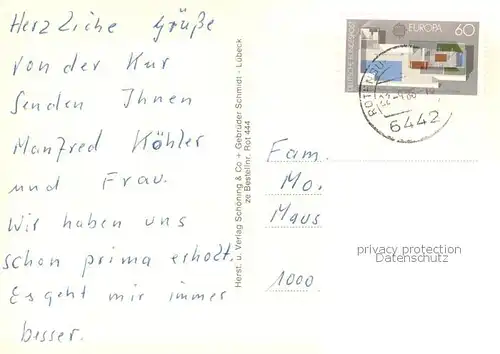 Herzliche Grüße
von der Kur
Senden Ihnen
Manfred Köhler
und Frau.
Wir haben uns
schon prima erholt.
Es geht mir immer
besser.
Herst. u. Verlag Schöning & Co + Gebrüder Schmidt - Lübeck
ze Bestellnr. Rot 444
DEUTSCHE BUNDESPOST
EUROPA
60
6442
Fam.
Mo.
Maus
1000
privacy protection
Datenschutz